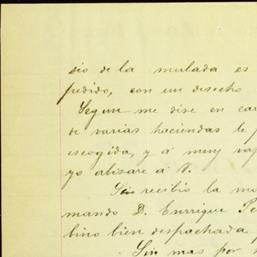 sio de la mulada es
pedido, con un desecho
Segun me dise en car
de varias haciendas le p
escogida, y á muy
yo abisare á V.
Sin recibio la mo
mando D. Enrrique Pe
bino bien despachada
Sin mas por